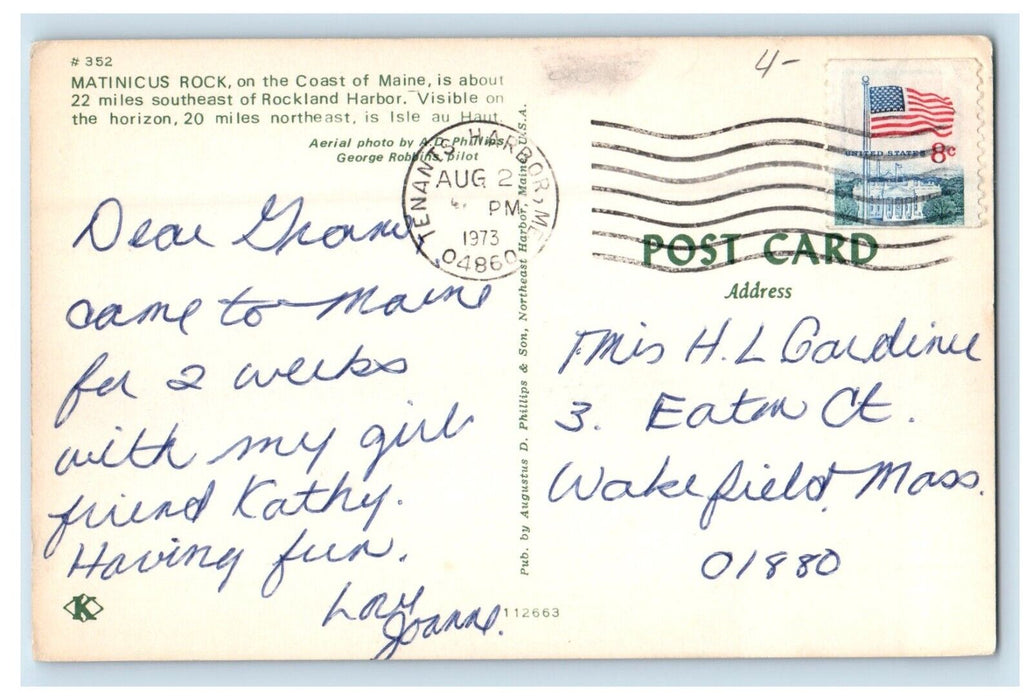 # 352
MATINICUS ROCK, on the Coast of Maine, is about
22 miles southeast of Rockland Harbor. Visible on
the horizon, 20 miles northeast, is Isle au Haut.
Aerial photo by A.D. Phillips
George Robbins, pilot
Dear Gram
came to Maine
for 2 weeks
with my girl
friend Kathy.
Having fun.
Love
Joanne.
K
TENANTS HARBOR, ME
AUG 2
PM
1973
04860
Pub. by Augustus D. Phillips & Son, Northeast Harbor, Maine, U.S.A.
112663
4-
UNITED STATES 8c
POST CARD
Address
Mrs H. L Gardiner
3. Eaton Ct.
Wakefield Mass.
01880